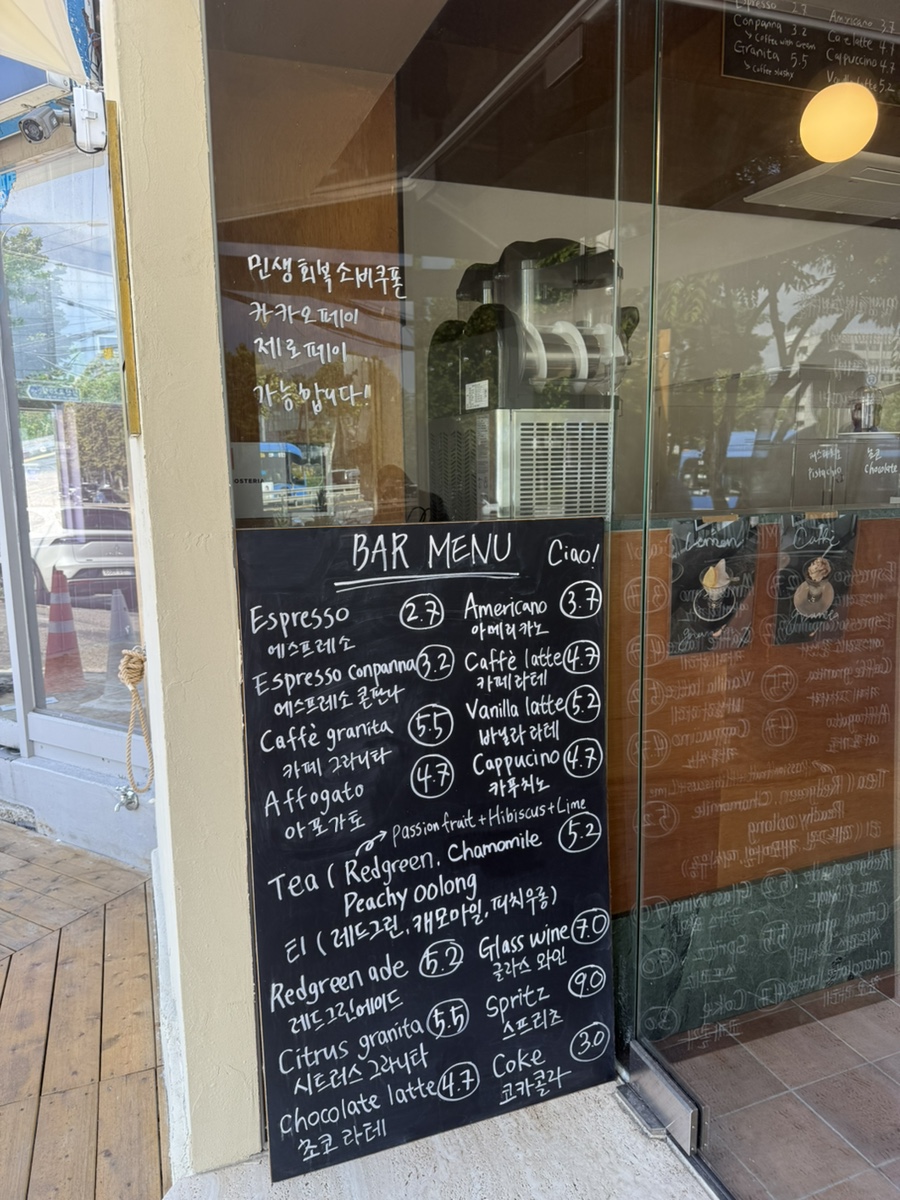 Espresso 2.7
Conpanna 3.2
↳ Coffee with cream
Granita 5.5
↳ Coffee slushy
Americano 3.7
Caffe latte 4.7
Cappuccino 4.7
Vanilla latte 5.2
민생회복소비쿠폰
카카오페이
제로페이
가능합니다!
OSTERIA
피스타치오
Pistachio
초콜렛
Chocolate
Lemon
Caffè
BAR MENU Ciao!
Espresso 2.7
에스프레소
Espresso conpanna 3.2
에스프레소 콘판나
Caffè granita 5.5
카페 그라니타
Affogato 4.7
아포가토
Americano 3.7
아메리카노
Caffè latte 4.7
카페라테
Vanilla latte 5.2
바닐라 라테
Cappucino 4.7
카푸치노
Passion fruit + Hibiscus + Lime
Tea ( Redgreen, Chamomile 5.2
Peachy oolong
티 ( 레드그린, 캐모마일, 피치우롱)
Redgreen ade 5.2
레드그린에이드
Citrus granita 5.5
시트러스 그라니타
Chocolate latte 4.7
초코 라테
Glass wine 7.0
글라스 와인
Spritz 9.0
스프리츠
Coke 3.0
코카콜라